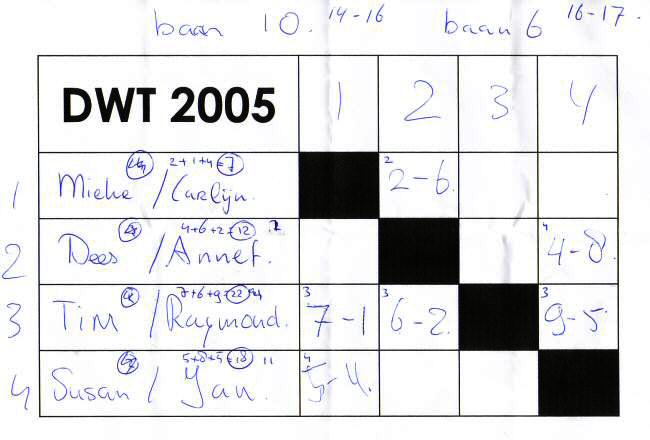 baan 10. 14-16 baan 6 16-17.
DWT 2005 1 2 3 4
2+1+4=7 2
1 Mieke / Carlijn. 2-6.
4+6+2=12 4
2 Dees / Annet. 4-8.
7+6+9=22 3 3 3
3 Tim / Raymond. 7-1 6-2. 9-5
5+8+5=18 11 4
4 Susan / Jan. 5-4.